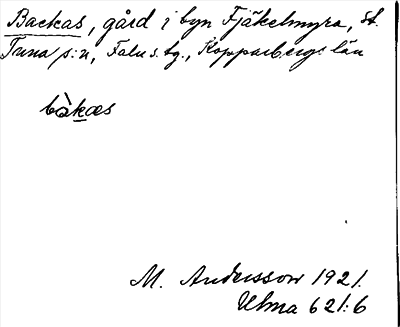 Backas, gård i byn Fjäkelmyra, St.
Tuna s:n, Falu s. tg., Kopparbergs län
bàkæs
M. Andersson 1921.
Ulma 621:6